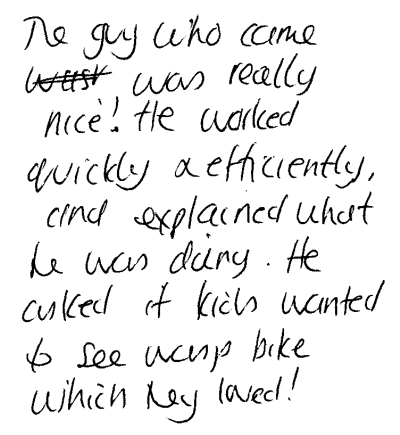 The guy who came
was really
nice! He worked
quickly & efficiently,
and explained what
he was doing. He
asked if kids wanted
to see wasp bike
which they loved!